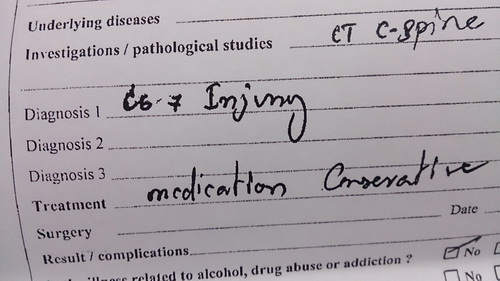 Underlying diseases
Investigations / pathological studies CT C-Spine
Diagnosis 1 C6-7 Injury
Diagnosis 2
Diagnosis 3
Treatment medication Conserative
Surgery Date
Result / complications
illness related to alcohol, drug abuse or addiction ? No
No